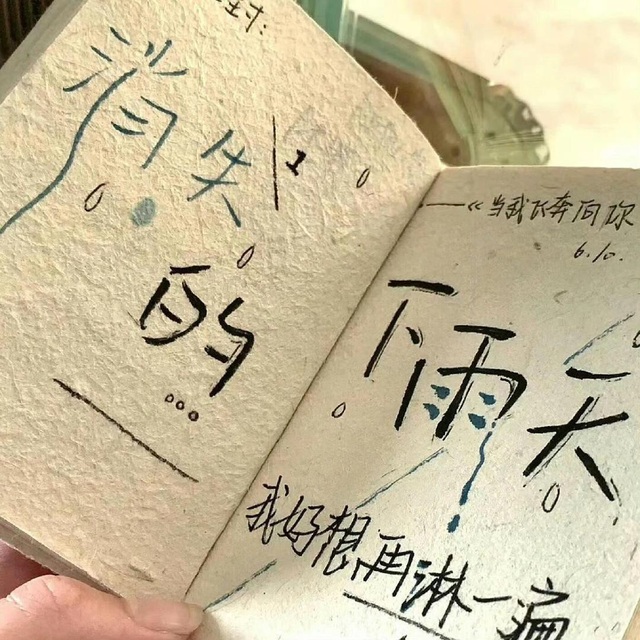 消失
的...
——《当我飞奔向你
6.10.
下雨天
我好想再淋一遍